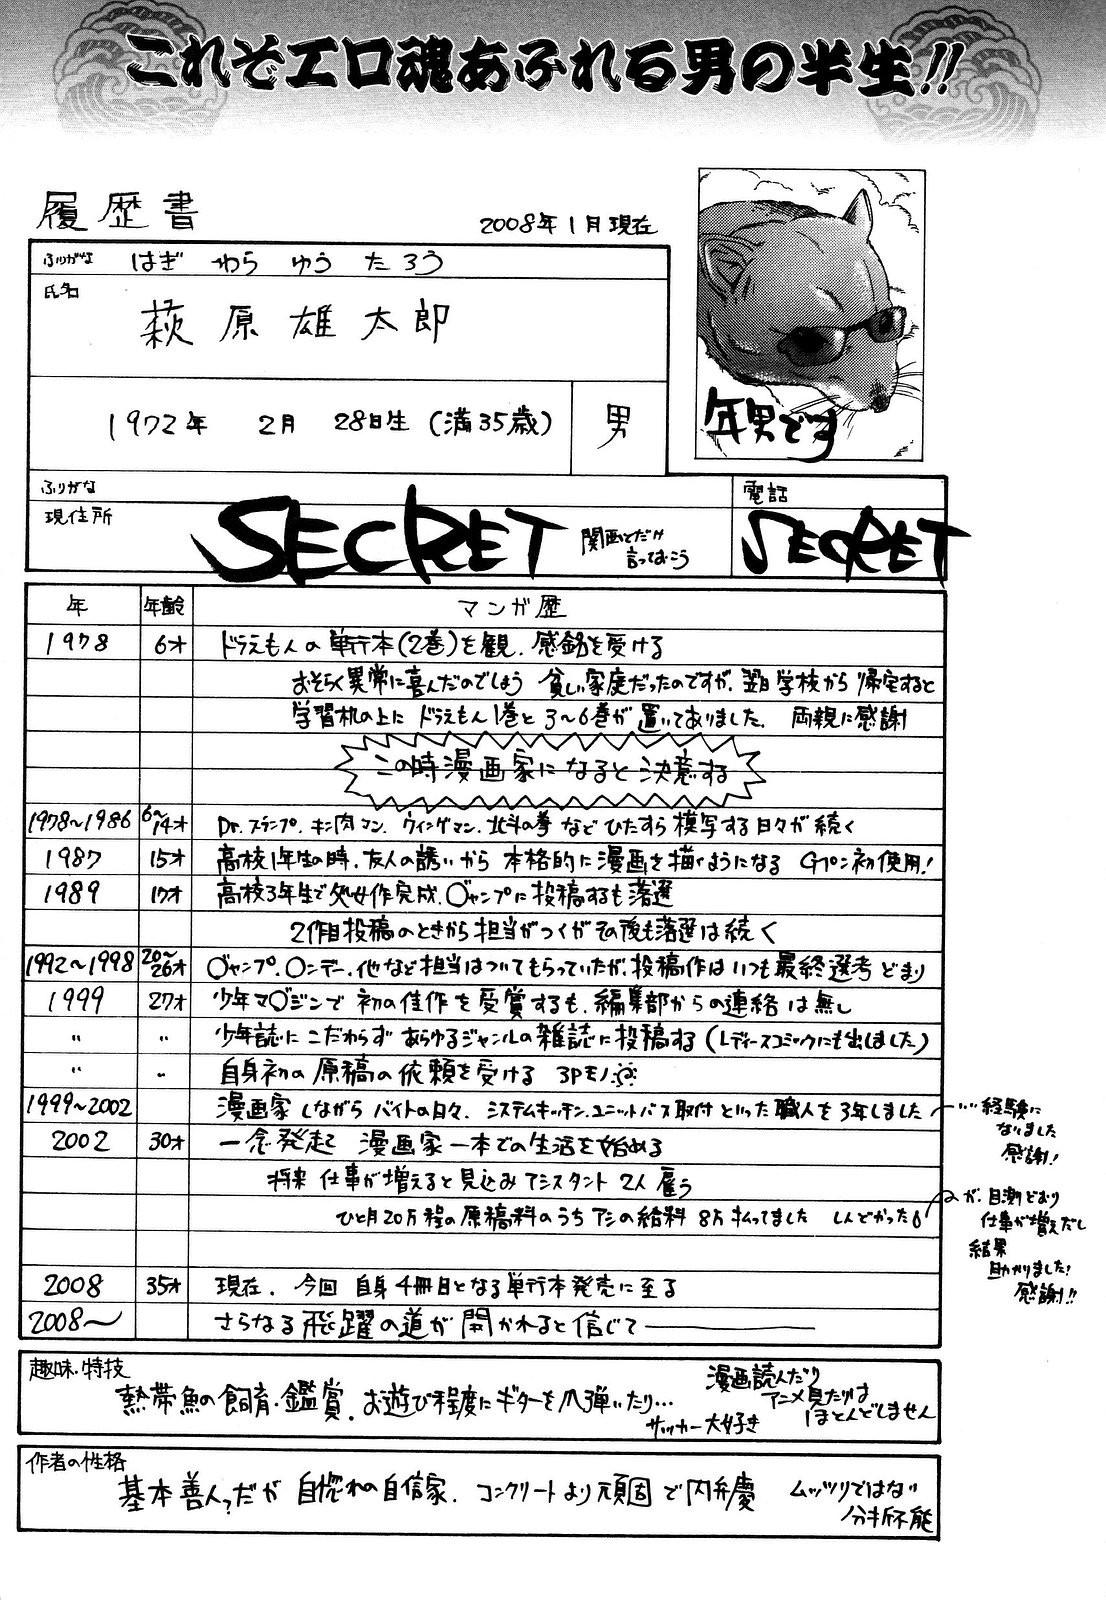 これぞエロ魂あふれる男の半生!!
履歴書
2008年1月現在
ふりがな はぎ わら ゆう たろう
氏名
萩原雄太郎
1972年 2月 28日生 (満35歳) 男
年男です
ふりがな
現住所
SECRET
関西とだけ
言っておこう
電話
SECRET
年 年齢 マンガ歴
1978 6才 ドラえもんの単行本(2巻)を観、感銘を受ける
おそらく異常に喜んだのでしょう 貧しい家庭だったのですが、翌日学校から帰宅すると
学習机の上に ドラえもん1巻と3～6巻が置いてありました。 両親に感謝
この時漫画家になると決意する
1978～1986 6～14才 Dr.スランプ、キン肉マン、ウイングマン、北斗の拳などひたすら模写する日々が続く
1987 15才 高校1年生の時、友人の誘いから 本格的に漫画を描くようになる Gペン初使用!
1989 17才 高校3年生で処女作完成、○ャンプに投稿するも落選
2作目投稿のときから担当がつくがその後も落選は続く
1992～1998 20～26才 ○ャンプ、○ンデー、他など担当はついてもらっていたが、投稿作はいつも最終選考どまり
1999 27才 少年マ○ジンで 初の佳作を受賞するも、編集部からの連絡は無し
〃 〃 少年誌にこだわらず あらゆるジャンルの雑誌に投稿する(レディースコミックにも出しました)
〃 〃 自身初の原稿の依頼を受ける 3Pモノ
1999～2002 漫画家しながらバイトの日々、システムキッチン、ユニットバス取付といった職人を3年しました
…経験に
なりました
感謝!
2002 30才 一念発起 漫画家一本での生活を始める
将来 仕事が増えると見込みアシスタント2人雇う
ひと月20万程の原稿料のうちアシの給料 8万払ってました しんどかった
が、目測どおり
仕事が増えだし
結果
助かりました!
感謝!!
2008 35才 現在、今回 自身4冊目となる単行本発売に至る
2008～ さらなる飛躍の道が開かれると信じて
趣味・特技
熱帯魚の飼育・鑑賞、お遊び程度にギターを爪弾いたり…
サッカー大好き
漫画読んだり
アニメ見たりは
ほとんどしません
作者の性格
基本善人っだが 自惚れの自信家、コンクリートより頑固で内弁慶
ムッツリではない
分析不能